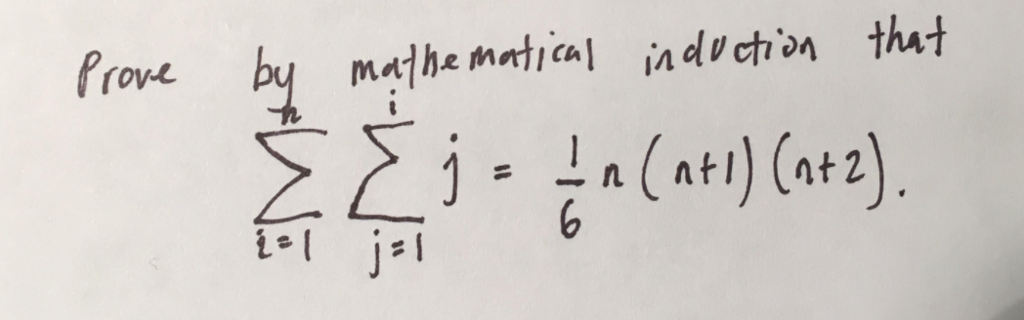 Prove by mathematical induction that
n i
∑ ∑ j = 1/6 n (n+1) (n+2).
i=1 j=1